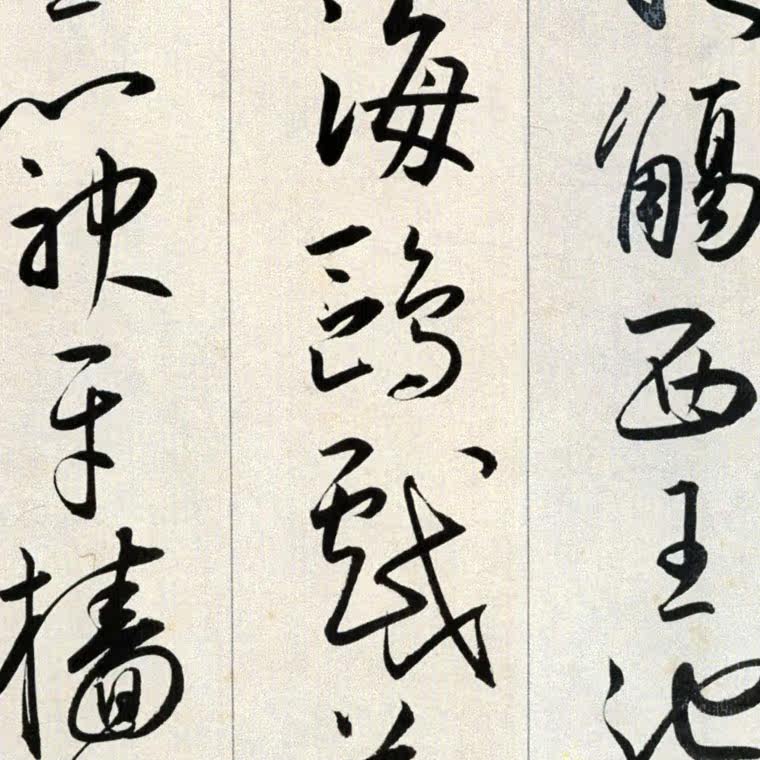 觴西王池
海鷗戲
袂牙檣